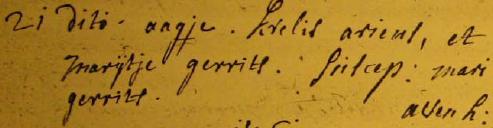 21 dito. aagje. Krelis ariens, et
Marijtje gerrits. suscep: mari
gerrits.